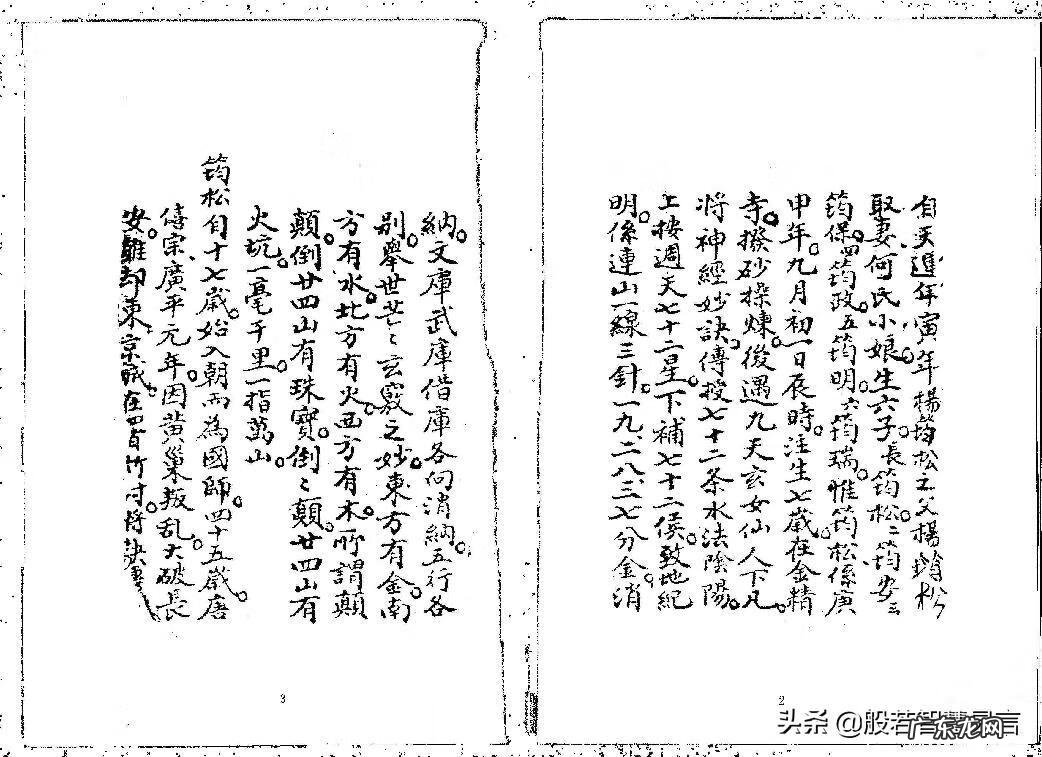 自天進年寅年楊筠松之父楊筠松
娶妻何氏小娘。生六子。長筠松。二筠安。三
筠保。四筠政。五筠明。六筠瑞。惟筠松係庚
申年。九月初一日辰時。注生七歲。在金精
寺。撥砂操煉。後遇九天玄女仙人下凡。
將神經妙訣。傳授七十二条水法陰陽。
上按週天七十二星。下補七十二侯。致地紀
明。係連山一線三針。一九。二八。三七分金。消
2
納。文庫武庫借庫。各向消納。五行各
别。舉世茫々。玄竅之妙。東方有金。南
方有水。北方有火。西方有木。所謂顛
顛。倒廿四山有珠寶。倒々顛。廿四山有
火坑。一毫千里。一指萬山。
筠松自十七歲。始入朝。而為國師。四十五歲。唐
僖宗。廣平元年。因黄巢叛乱。大破長
安。離却東京。
3
头条 @般若智慧
广东龙网